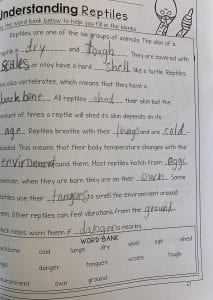 Understanding Reptiles
the word bank below to help you fill in the blanks.
Reptiles are one of the six groups of animals. The skin of a
reptile is dry and tough. They are covered with
scales or may have a hard shell like a turtle. Reptiles
are also vertebrates, which means that they have a
backbone. All reptiles shed their skin but the
amount of times a reptile will shed its skin depends on its
age. Reptiles breathe with their lungs and are cold
blooded. This means that their body temperature changes with the
environment around them. Most reptiles hatch from eggs
However, when they are born they are on their own. Some
reptiles use their tongues to smell the environment around
them. Other reptiles can feel vibrations from the ground
which helps warn them if danger is nearby.
WORD BANK
backbone cold lungs dry shell age shed
eggs danger tongues scales tough
environment own ground
61